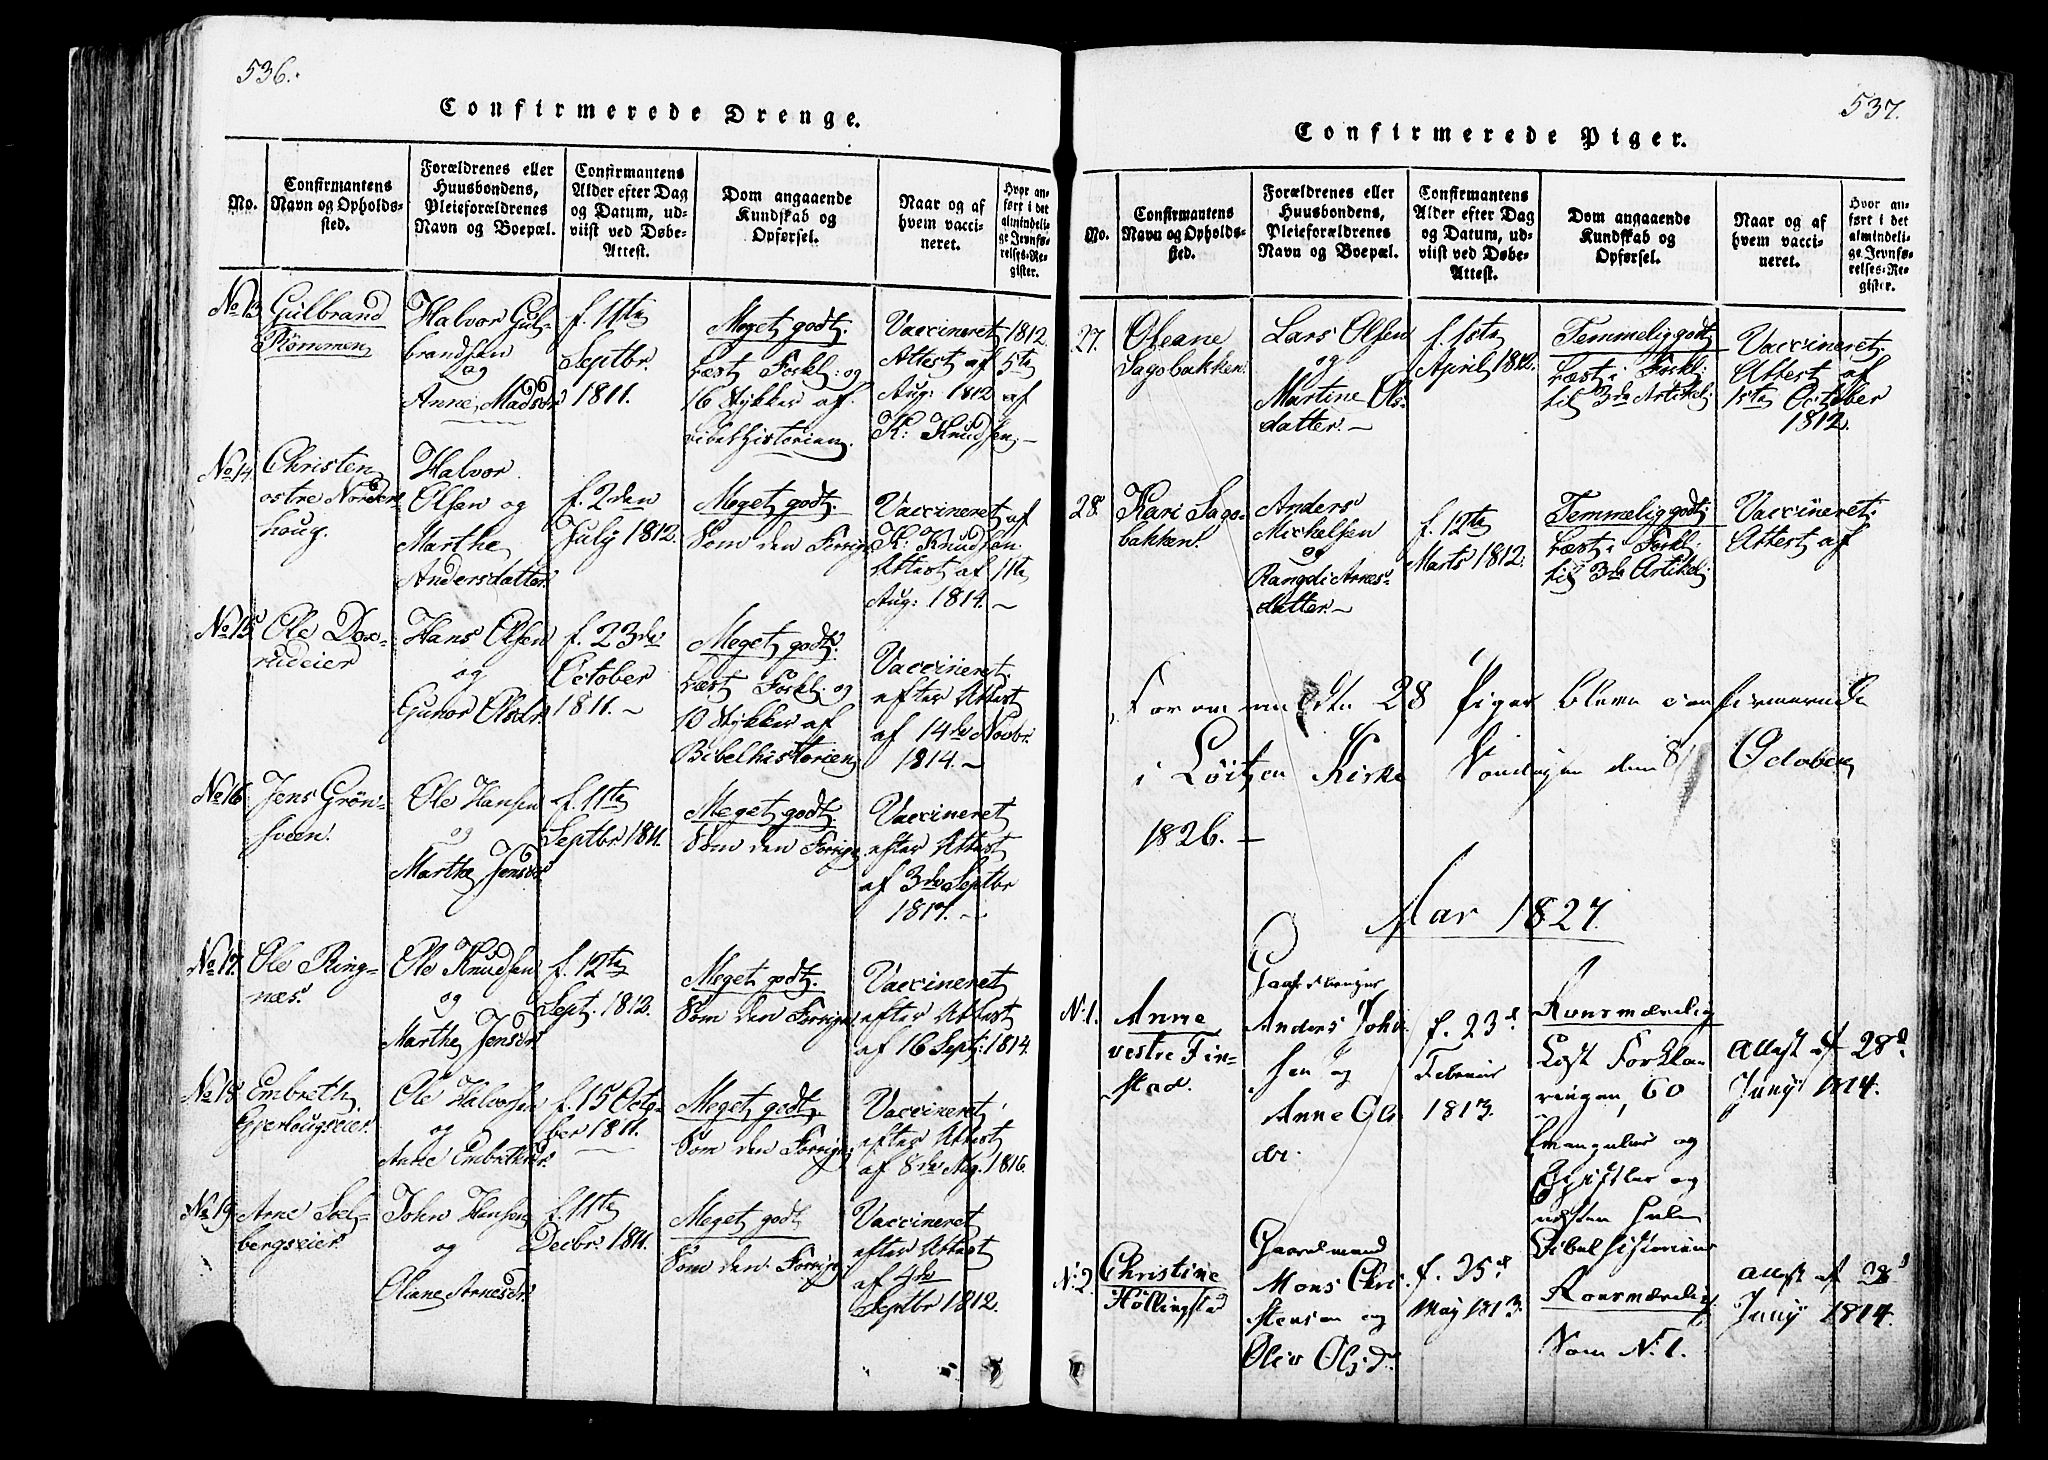 536.
Confirmerede Drenge.
No.
Confirmantens
Navn og Opholds-
sted.
Forældrenes eller
Huusbondens,
Pleieforældrenes
Navn og Boepæl.
Confirmantens
Alder efter Dag
og Datum, ud-
viist ved Døbe-
Attest.
Dom angaaende
Kundskab og
Opførsel.
Naar og af
hvem vacci-
neret.
Hvor an-
ført i det
almindeli-
ge Jevnfø-
relses-Re-
gister.
No 13.
Gulbrand
Rømmen
Halvor Gul-
brandsen
og
Anne Madsdr
f. 11te
Septbr.
1811.
Meget godt.
Læst Forkl: og
16 Stykker af
Bibelhistorien.
Vaccineret 1812.
Attest af 5te
Aug: 1812 af
K: Knudsen.—
No 14.
Christen
østre Norder-
houg.
Halvor
Olsen og
Marthe
Andersdatter.
f. 2den
July 1812.
Meget godt.
Som den Forrige
Vaccineret af
K: Knudsen.
Attest af 11te
Aug: 1814.—
No 15.
Ole Dæ-
rudeier
Hans Olsen
og
Gunor Olsdr.
f. 23de
October
1811.—
Meget godt.
Læst Forkl: og
10 Stykker af
Bibelhistorien
Vaccineret
efter Attest
af 14de Novbr.
1814.—
No 16.
Jens Grøn-
sveen.
Ole Hansen
og
Marthe Jensdr.
f. 11te
Septbr 1811.
Meget godt.
Som den Forrige.
Vaccineret
efter Attest
af 3de Septbr
1817.—
No 17.
Ole Ring-
næs.
Ole Knudsen
og
Marthe Jensdr.
f. 12te
Sept. 1812.
Meget godt.
Som den Forrige
Vaccineret
efter Attest
af 16 Sept: 1814.
No 18.
Embreth
Gjerlougseier.
Ole Halvorsen
og
Anne Embrethsdr.
f. 15 Octo-
ber 1811.
Meget godt.
Som den Forrige
Vaccineret
efter Attest
af 8de Aug. 1816.
No 19.
Arne Sæl-
bergseier.
John Hansen
og
Oliane Arnesdr.
f. 11te
Decbr. 1811.
Meget godt
Som den Forrige.
Vaccineret
efter Attest
af 4de
Septbr 1812.
537.
Confirmerede Piger.
No.
Confirmantens
Navn og Opholds-
sted.
Forældrenes eller
Huusbondens,
Pleieforældrenes
Navn og Boepæl.
Confirmantens
Alder efter Dag
og Datum, ud-
viist ved Døbe-
Attest.
Dom angaaende
Kundskab og
Opførsel.
Naar og af
hvem vacci-
neret.
Hvor an-
ført i det
almindeli-
ge Jevnfø-
relses-Re-
gister.
27.
Oleane
Sagobakken.
Lars Olsen
og
Martine Ols-
datter.—
f. 1ste
April 1812.
Temmelig godt
Læst i Forkl:
til 3de Artikel;
Vaccineret.
Attest af
1ste October
1812.
28.
Kari Sago-
bakken.
Anders
Mickelsen
og
Rangdi Arnes-
datter.—
f. 12te
Marts 1812.
Temmelig godt;
Læst i Forkl:
til 3de Artikel;
Vaccineret.
Attest af
Forommeldte 28 Piger bleve confirmerede
i Löiten Kirke Søndagen den 8 October
1826.—
Aar 1827.
N: 1.
Anne
vestre Fin-
stad.
Gaardbruger
Anders Joha
sen og
Anne Ols
dr.
f. 23d
Februar
1813.
Roesværdig
Læst Forkla
ringen, 60
Evangelier og
Epistler og
næsten hele
Bibelhistorien
Attest af 28d
Juny 1814.
N: 2.
Christine
Höllingstad
Gaardmand
Mons Chri
stensen og
Oliv Olsd.
f. 25d
May 1813.
Roesværdig
Som N: 1.
Attest af 28d
Juny 1814.